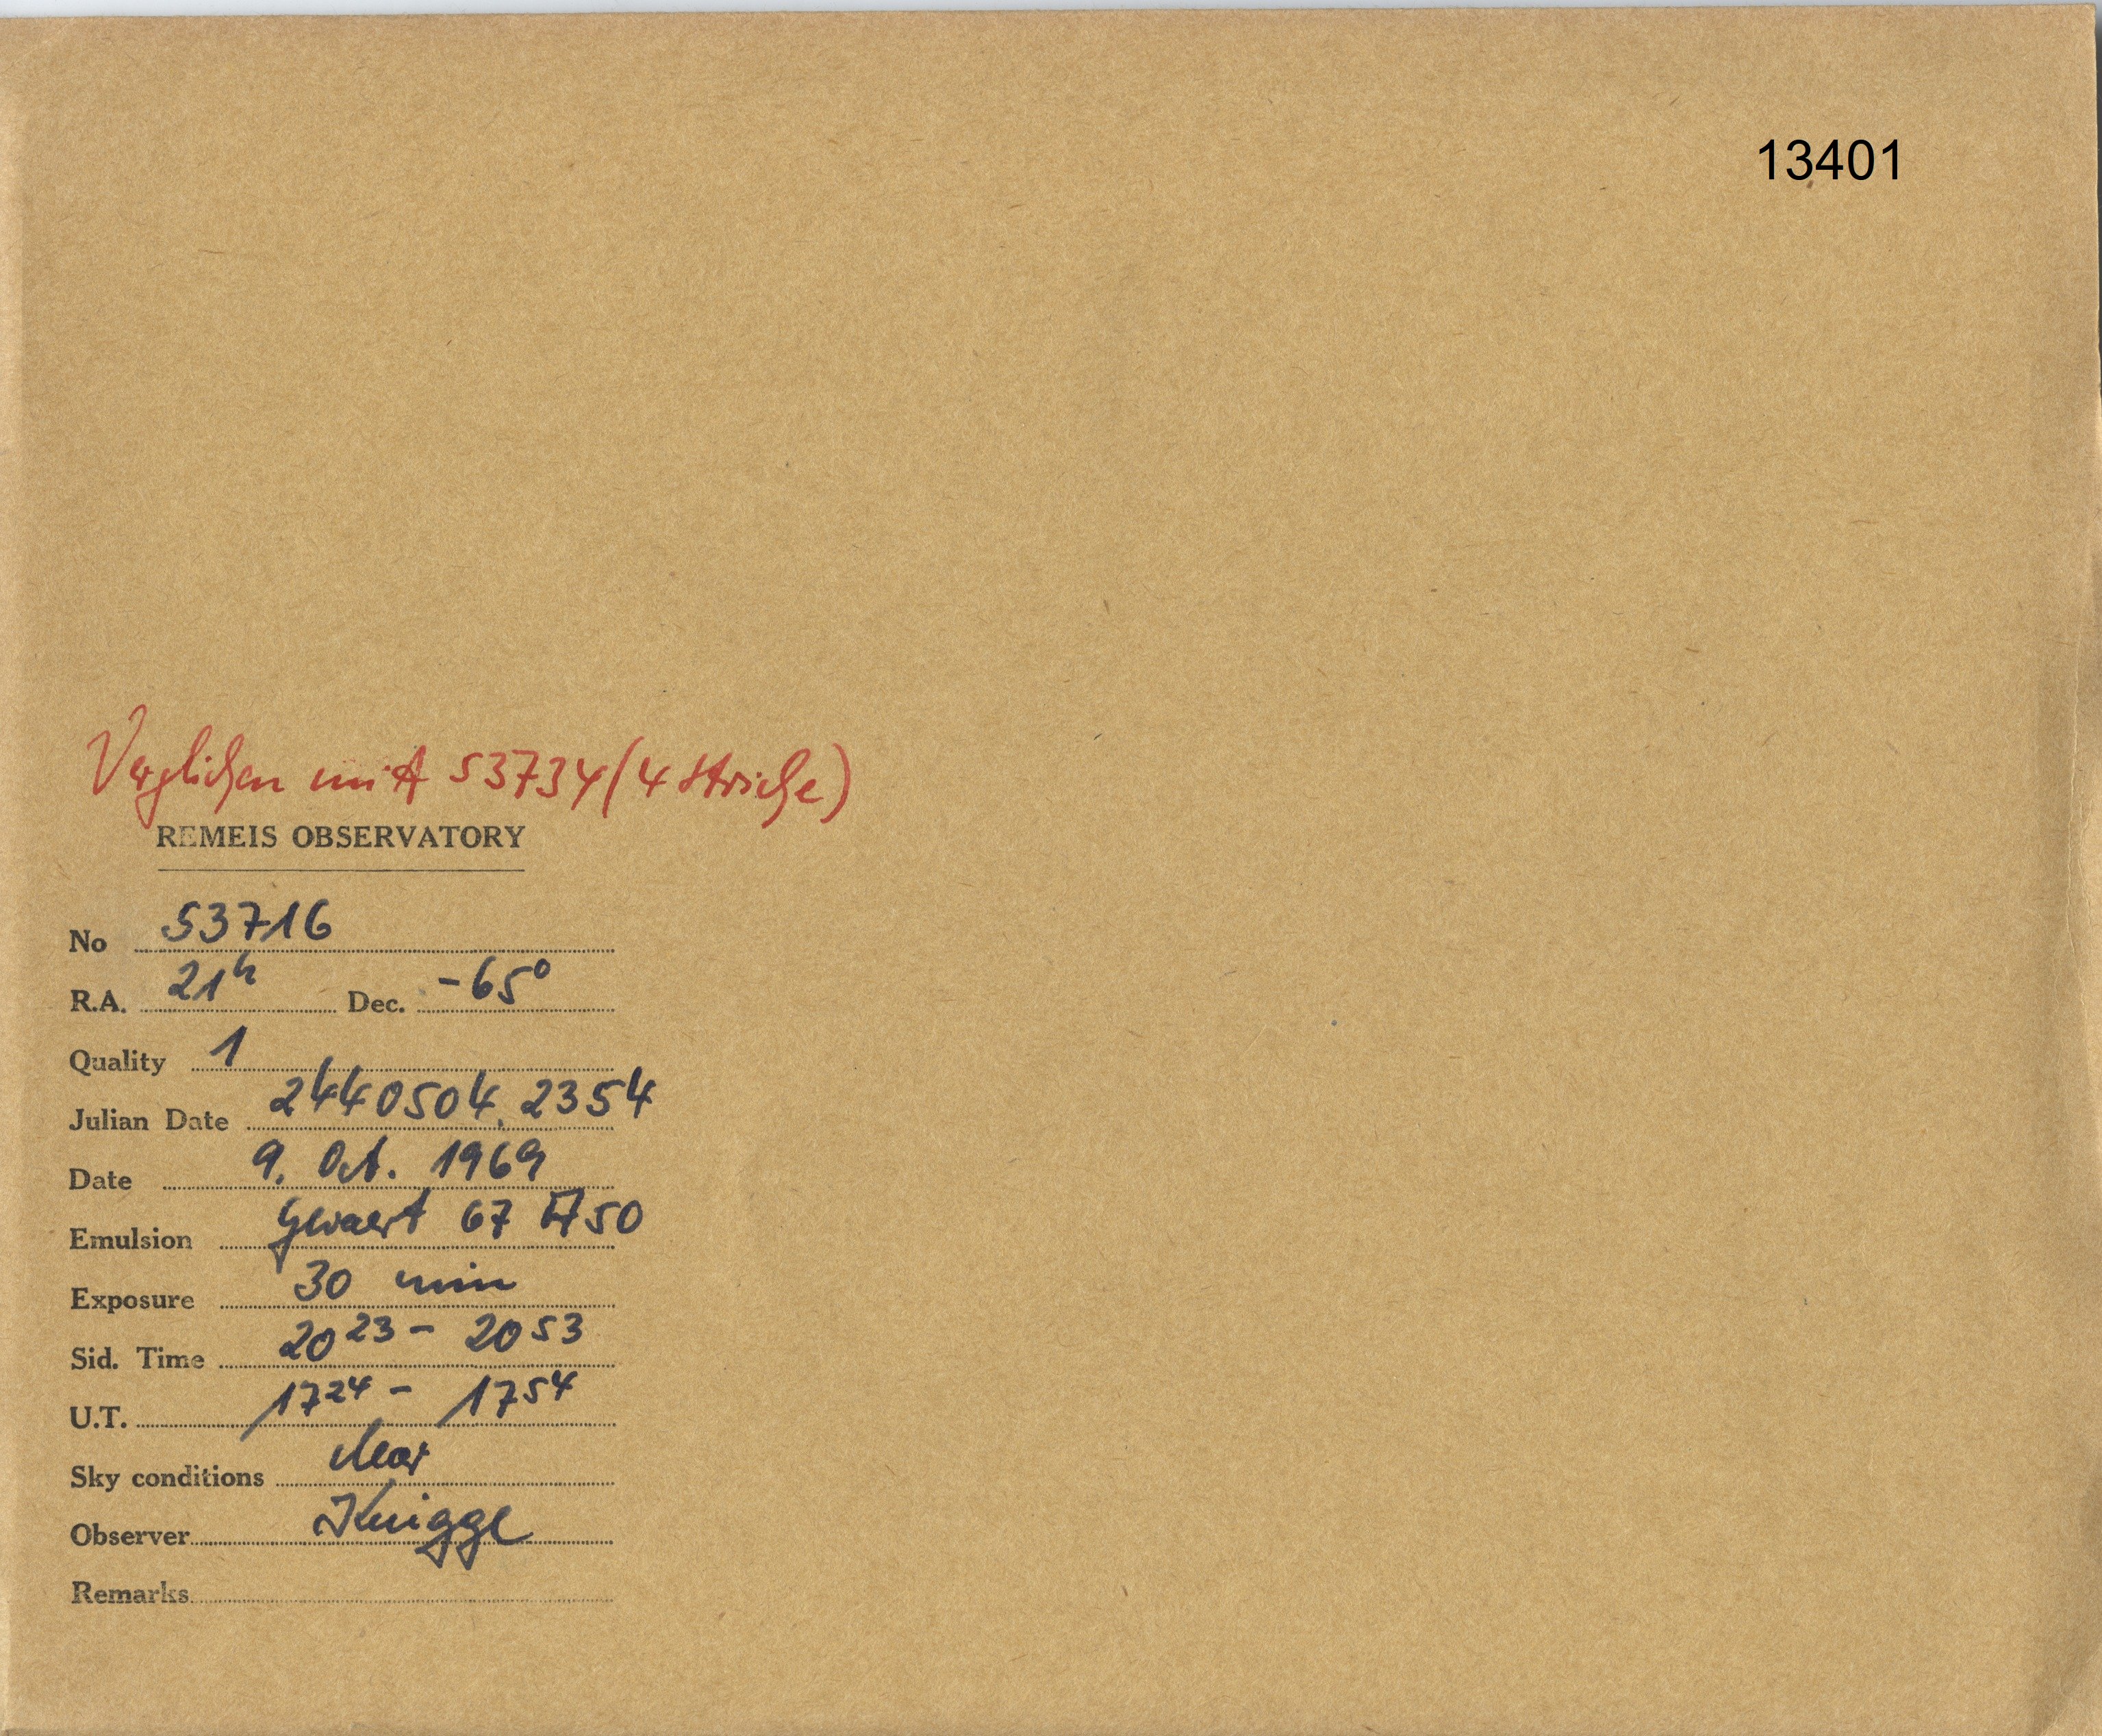 13401
Verglichen mit 53734 (4 Striche)
REMEIS OBSERVATORY
No 53716
R.A. 21h Dec. -65°
Quality 1
Julian Date 2440504,2354
Date 9. Oct. 1969
Emulsion Gevaert 67 A50
Exposure 30 min
Sid. Time 20 23 - 20 53
U.T. 17 24 - 17 54
Sky conditions clear
Observer Knigge
Remarks